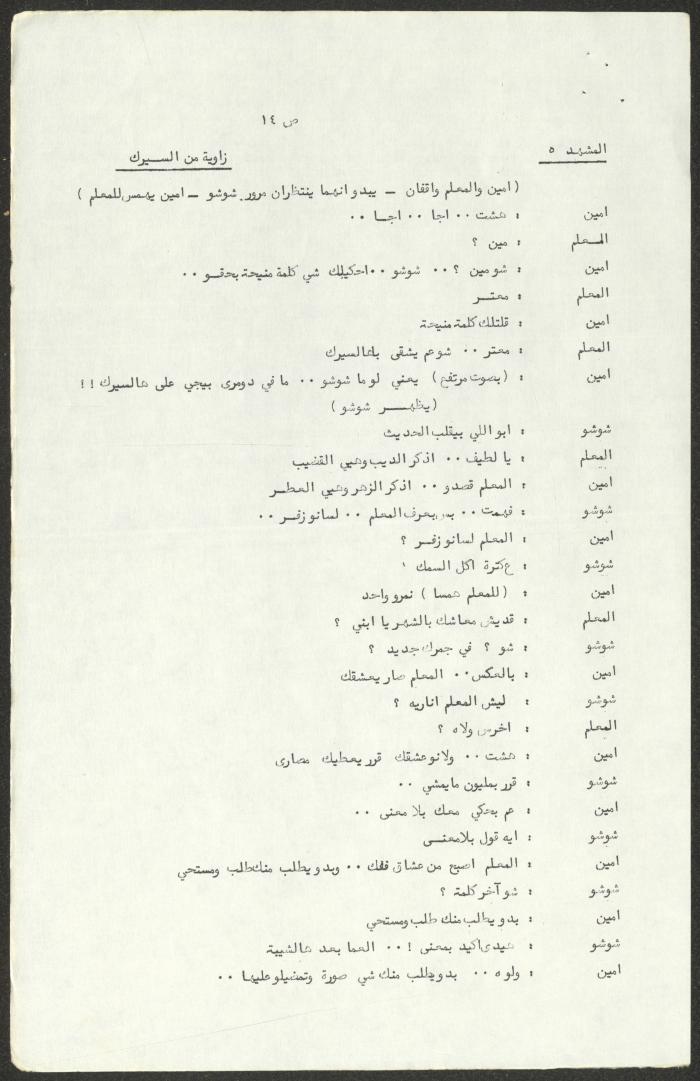 ص ١٤
المشهد ٥ زاوية من السيرك
( امين والمعلم واقفان - يبدو انهما ينتظران مرور شوشو - امين يهمس للمعلم )
امين : هشت ٠٠ اجا ٠٠ اجا ٠٠
المعلم : مين ؟
امين : شو مين ؟ ٠٠ شوشو ٠٠ احكيلك شي كلمة منيحة بحقو ٠٠
المعلم : معتر
امين : قلتلك كلمة منيحة
المعلم : معتر ٠٠ شو عم يشقى بالسيرك
امين : (بصوت مرتفع) يعني لو ما شوشو ٠٠ ما في دومرى بيجي على هالسيرك !!
(يظهر شوشو )
شوشو : ابو اللي بيقلب الحديث
المعلم : يا لطيف ٠٠ اذكر الديب وهيي القضيب
امين : المعلم قصدو ٠٠ اذكر الزهر وهيي العطر
شوشو : فهمت ٠٠ بس بعرف المعلم ٠٠ لسانو زفر ٠٠
امين : المعلم لسانو زفر ؟
شوشو : ع كترة اكل السمك
امين : ( للمعلم همسا ) نمرو واحد
المعلم : قديش معاشك بالشهر يا ابني ؟
شوشو : شو ؟ في جمرك جديد ؟
امين : بالعكس ٠٠ المعلم صار يعشقك
شوشو : ليش المعلم اناريه ؟
المعلم : اخرس ولاه ؟
امين : هشت ٠٠ ولانو عشقك قرر يعطيك مصارى
شوشو : قرر بمليون ما يمشي ٠٠
امين : عم بحكي معك بلا معنى ٠٠
شوشو : ايه قول بلا معنى
امين : المعلم اصبح من عشاق فنك ٠٠ وبدو يطلب منك طلب ومستحي
شوشو : شو آخر كلمة ؟
امين : بدو يطلب منك طلب ومستحي
شوشو : هيدى اكيد بمعنى ! ٠٠ العما بعد هالشيبة
امين : ولوه ٠٠ بدو يطلب منك شي صورة وتمضيلو عليها ٠٠